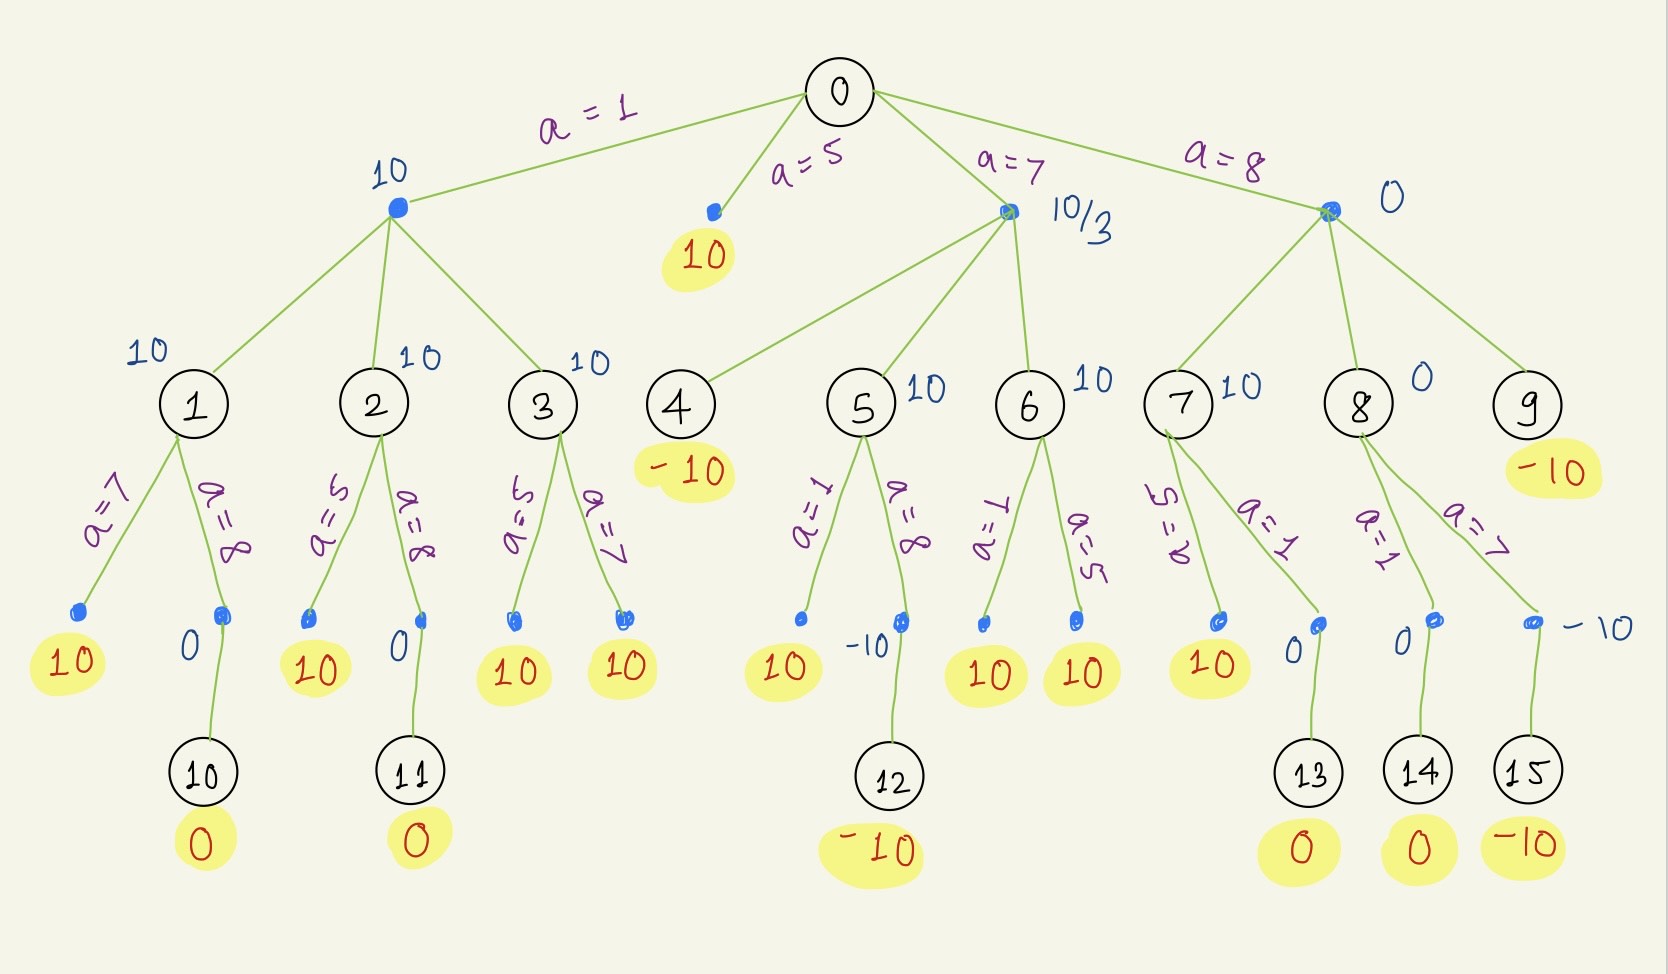 0
a = 1
a = 5
a = 7
a = 8
10
10
10/3
0
10
10
10
10
10
10
0
1
2
3
4
5
6
7
8
9
-10
-10
a=7
a=8
a=5
a=8
a=5
a=7
a=1
a=8
a=1
a=5
a=5
a=1
a=1
a=7
10
0
10
0
10
10
10
-10
10
10
10
0
0
-10
10
11
12
13
14
15
0
0
-10
0
0
-10